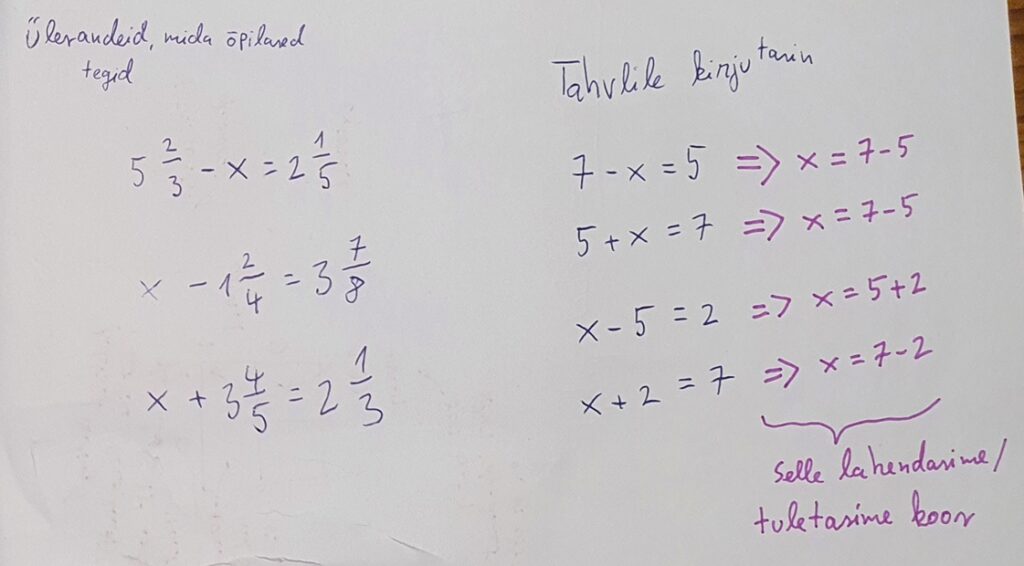 Ülesandeid, mida õpilased
tegid
5 2/3 - x = 2 1/5
x - 1 2/4 = 3 7/8
x + 3 4/5 = 2 1/3
Tahvlile kirjutasin
7 - x = 5 => x = 7 - 5
5 + x = 7 => x = 7 - 5
x - 5 = 2 => x = 5 + 2
x + 2 = 7 => x = 7 - 2
Selle lahendasime/
tuletasime koos